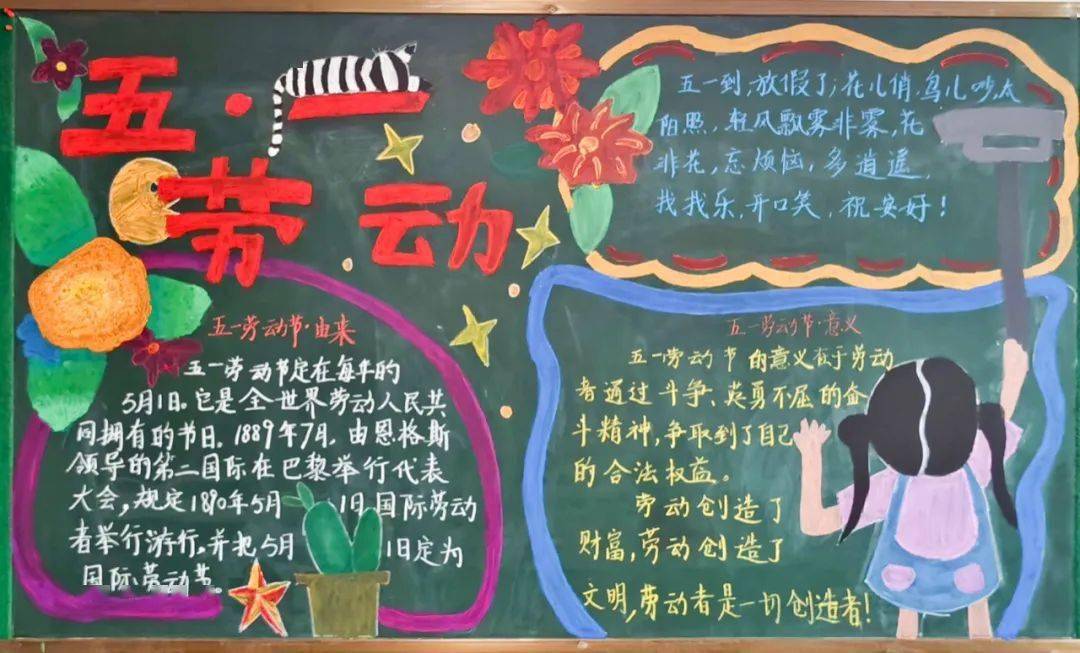 五·一
劳动
五一到,放假了;花儿俏,鸟儿吵,太
阳照,轻风飘雾非雾,花
非花,忘烦恼,多逍遥,
找找乐,开口笑,祝安好!
五一劳动节·由来
五一劳动节定在每年的
5月1日。它是全世界劳动人民共
同拥有的节日。1889年7月,由恩格斯
领导的第二国际在巴黎举行代表
大会,规定1890年5月1日国际劳动
者举行游行,并把5月1日定为
国际劳动节。
五一劳动节·意义
五一劳动节的意义在于劳动
者通过斗争、英勇不屈的奋
斗精神,争取到了自己
的合法权益。
劳动创造了
财富,劳动创造了
文明,劳动者是一切创造者!